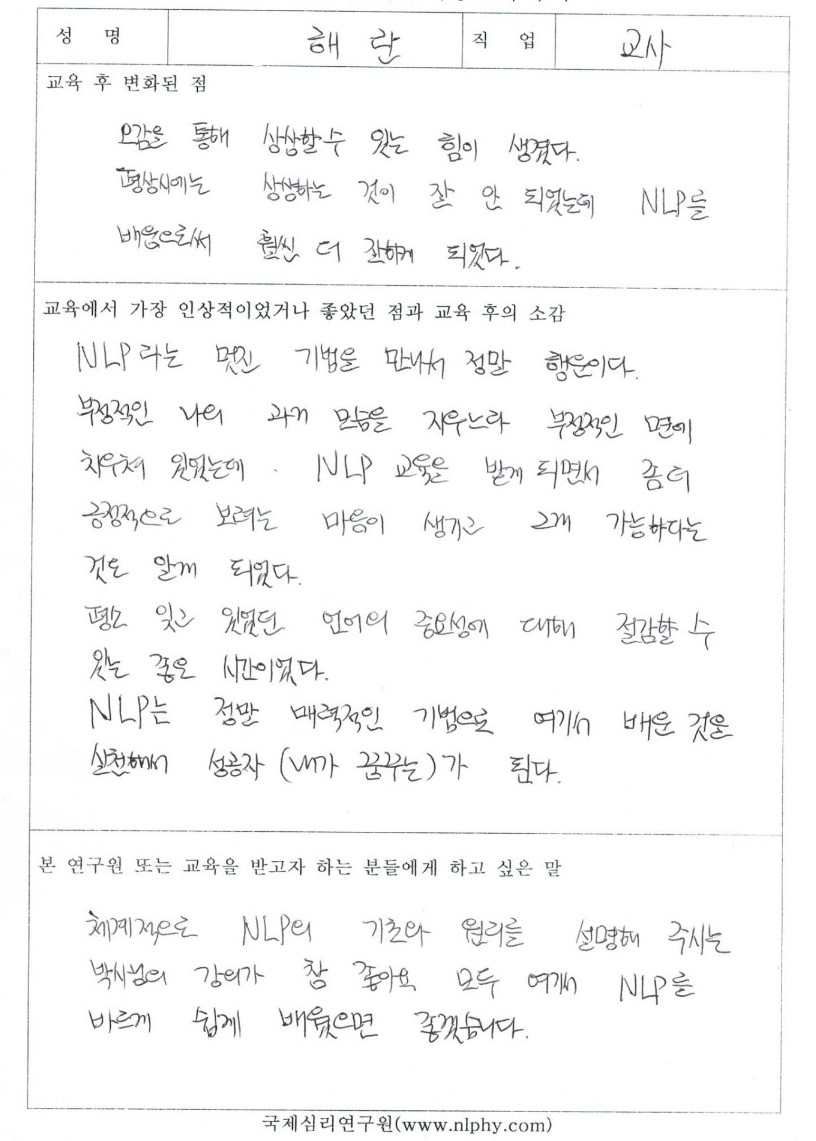 성 명 해 란 직 업 교사
교육 후 변화된 점
오감을 통해 상상할 수 있는 힘이 생겼다.
평상시에는 상상하는 것이 잘 안 되었는데 NLP를
배움으로써 훨씬 더 잘하게 되었다.
교육에서 가장 인상적이었거나 좋았던 점과 교육 후의 소감
NLP라는 멋진 기법을 만나서 정말 행운이다.
부정적인 나의 과거 모습을 지우느라 부정적인 면에
치우쳐 있었는데. NLP 교육을 받게 되면서 좀 더
긍정적으로 보려는 마음이 생기고 그게 가능하다는
것도 알게 되었다.
평소 잊고 있었던 언어의 중요성에 대해 절감할 수
있는 좋은 시간이었다.
NLP는 정말 매력적인 기법으로 여기서 배운 것을
실천해서 성공자 (내가 꿈꾸는)가 된다.
본 연구원 또는 교육을 받고자 하는 분들에게 하고 싶은 말
체계적으로 NLP의 기초와 원리를 설명해 주시는
박사님의 강의가 참 좋아요 모두 여기서 NLP를
바르게 쉽게 배웠으면 좋겠습니다.
국제심리연구원(www.nlphy.com)